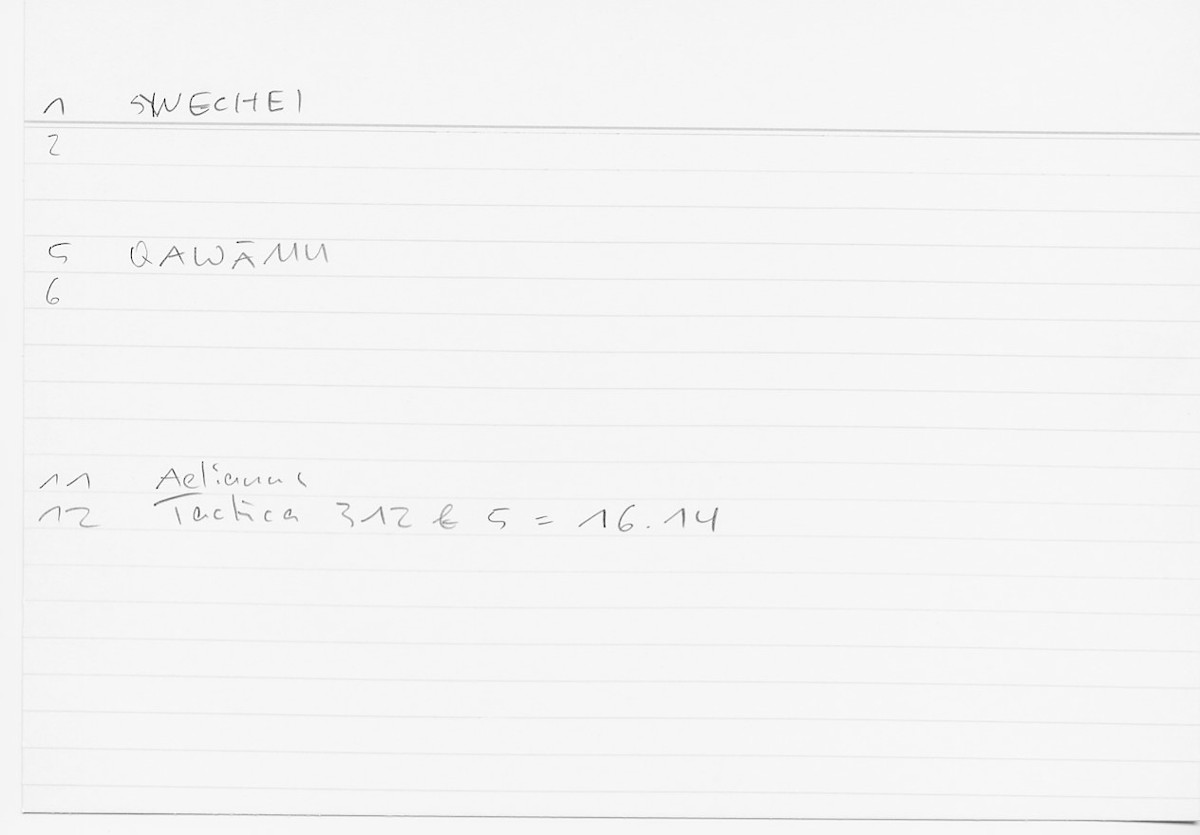 1 SYNECHEI
2
5 QAWĀMU
6
11 Aelianus
12 Tactica 312 b 5 = 16.14